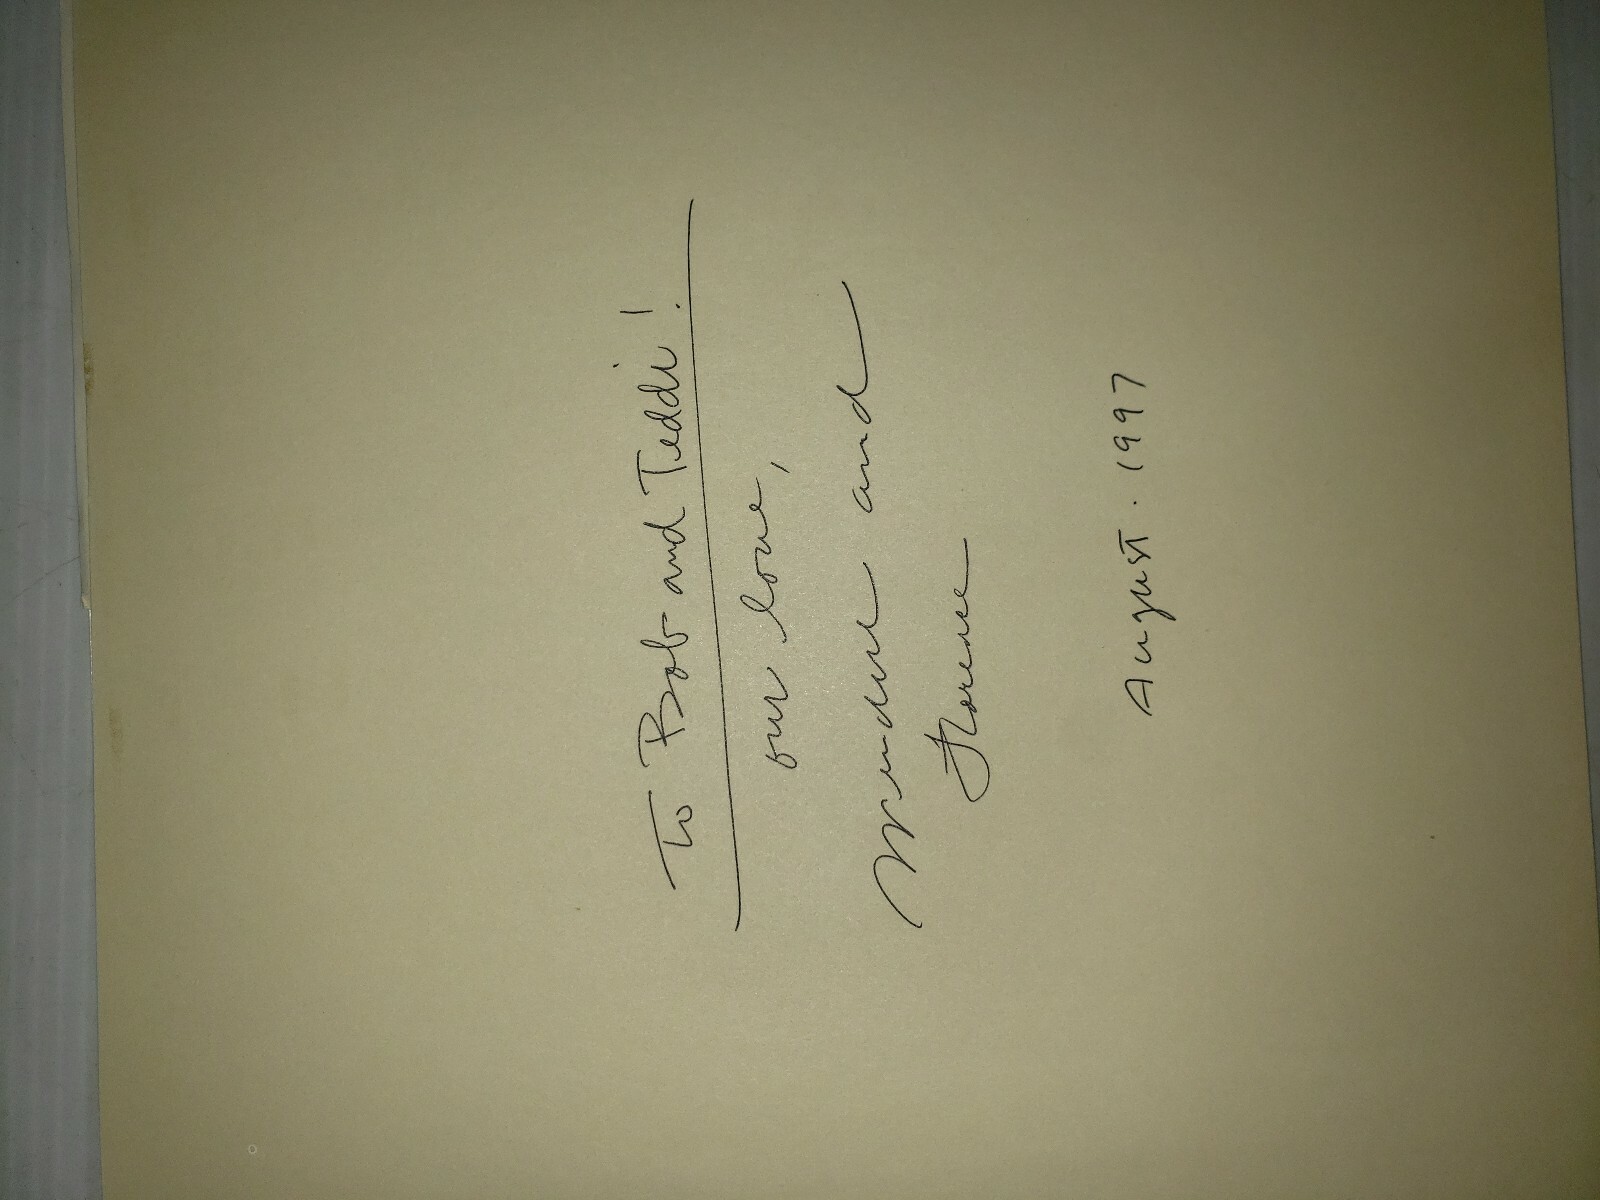 To Bob and Teddi!
our love,
and
Florence
August. 1997